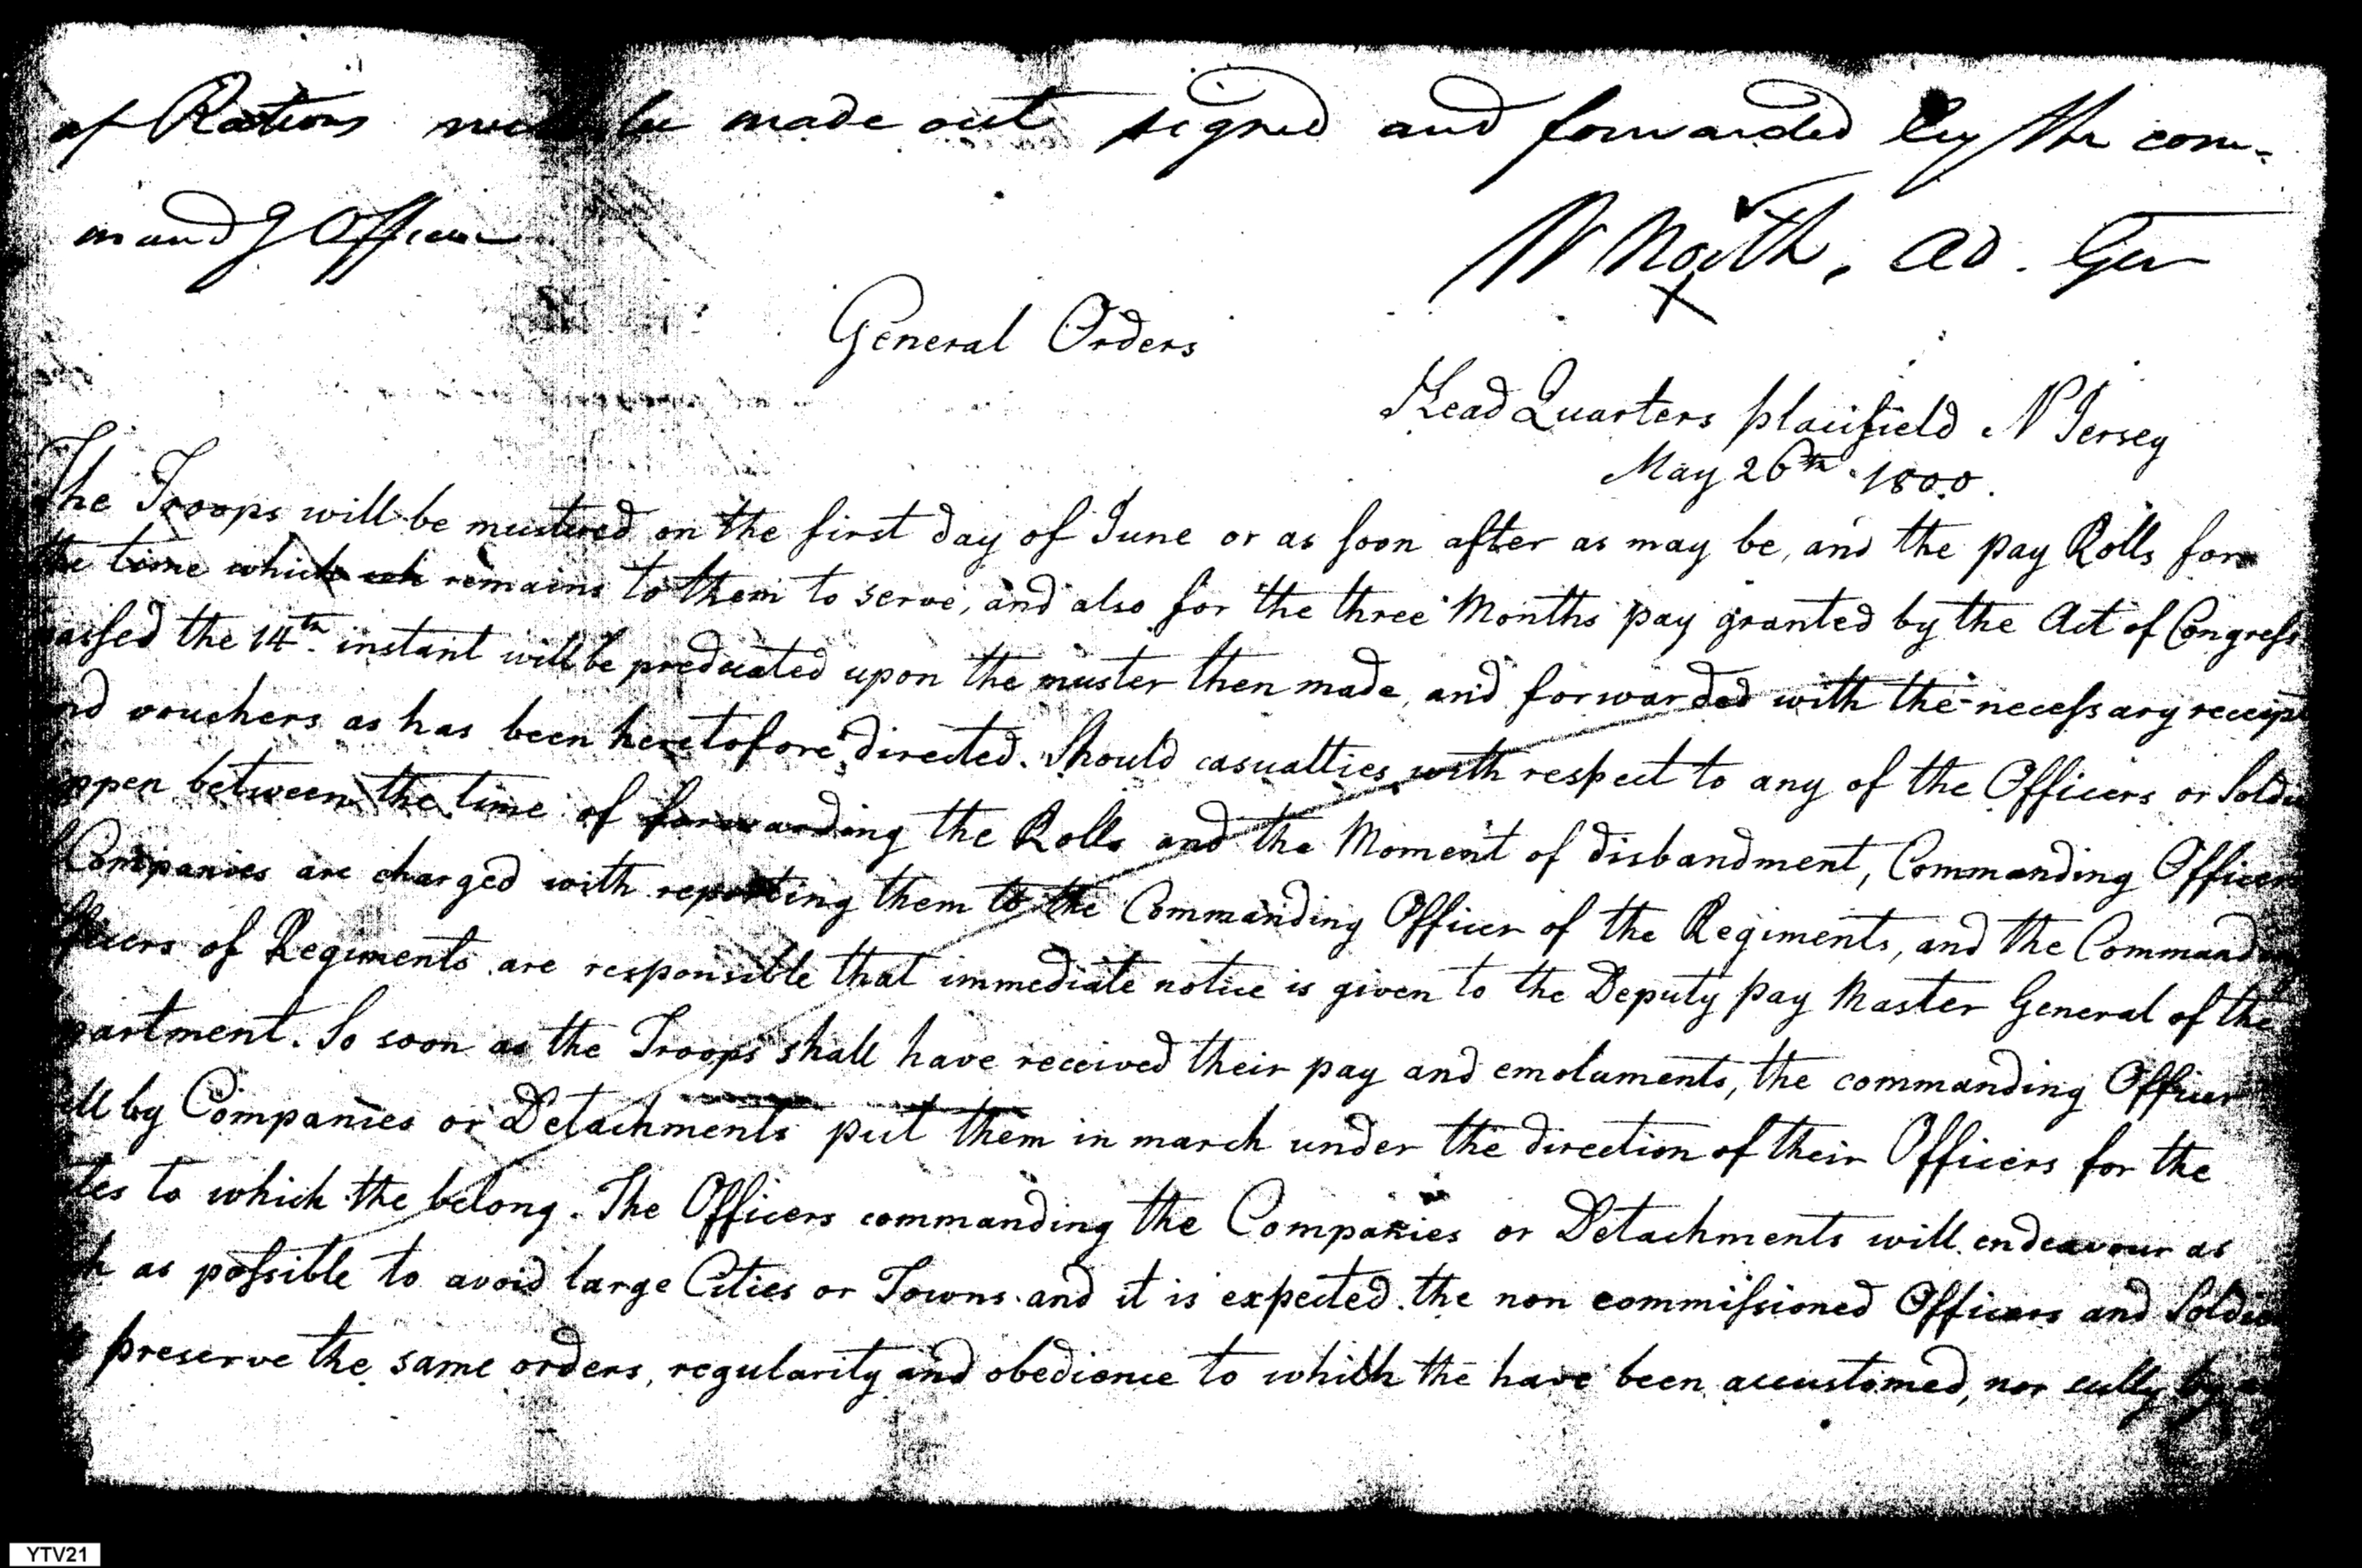 of Rations must be made out signed and forwarded by the com-
mandg Officer
W North, Ad. Gen
General Orders
Head Quarters plainfield N Jersey
May 26th 1800.
The Troops will be mustered on the first day of June or as soon after as may be, and the pay Rolls for
the time which remains to them to serve, and also for the three Months pay granted by the Act of Congress
passed the 14th instant will be predicated upon the muster then made, and forwarded with the necessary
nd vouchers as has been heretofore directed. Should casualties with respect to any of the Officers or
ppen between the time of forwarding the Rolls and the Moment of disbandment, Commanding Officer
Companies are charged with reporting them to the Commanding Officer of the Regiments, and the Command
fficers of Regiments are responsible that immediate notice is given to the Deputy pay Master General of the
partment. So soon as the Troops shall have received their pay and emoluments, the commanding Officer
ll by Companies or Detachments put them in march under the direction of their Officers for the
tes to which the belong. The Officers commanding the Companies or Detachments will endeavour as
h as possible to avoid large Cities or Towns and it is expected the non commissioned Officers and
preserve the same orders, regularity and obedience to which the have been accustomed, nor sully by
YTV21